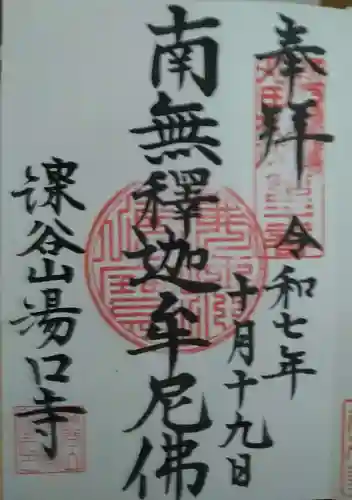 奉拜
令和七年
十月十九日
南無釋迦牟尼佛
深谷山湯口寺